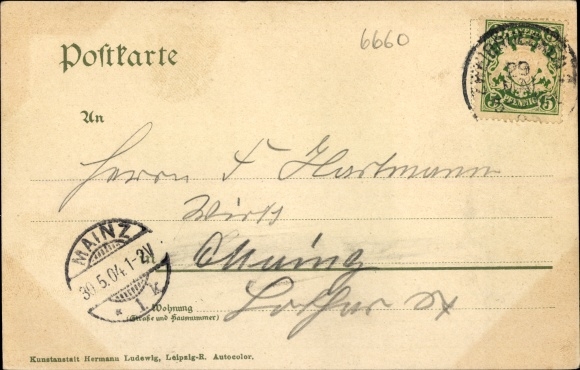 6660
Postkarte
29
PFENNIG 5
An
Herrn F Hartmann
Wirth
Mainz
MAINZ
30.5.04.1-2V
* 1. K
Wohnung
(Straße und Hausnummer)
Kunstanstalt Hermann Ludewig, Leipzig-R. Autocolor.